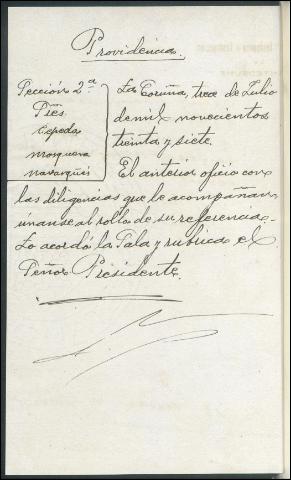 Providencia.
Sección 2ª
Sres.
Cepeda
Mosquera
Navarqués
La Coruña, trece de Julio
de mil novecientos
treinta y siete.
El anterior oficio con
las diligencias que le acompañan
únanse al rollo de su referencia.
Lo acordó la Sala y rubrica el
Señor Presidente.